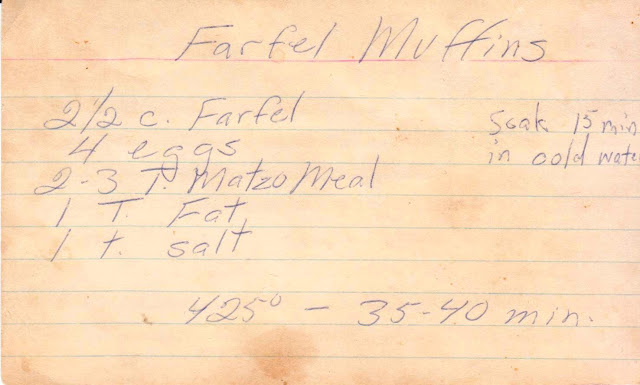 Farfel Muffins
2 1/2 c. Farfel
4 eggs
2-3 T. Matzo Meal
1 T. Fat
1 t. salt
Soak 15 min
in cold wate
425° - 35-40 min.